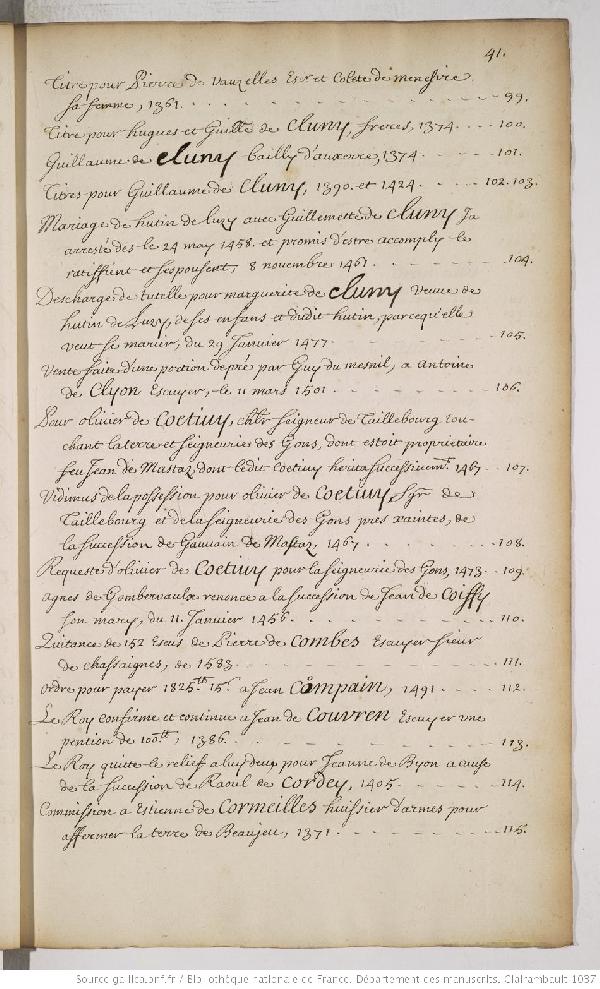 41.
Titre pour Pierre de Vauzelles Escr et Colete de menessire
sa femme, 1361. . . . . . . . . 99.
Titre pour hugues et Guille de Cluny, freres, 1374. . . . 100.
Guillaume de Cluny bailly d'auxerre, 1374. . . . . . 101.
Titres pour Guillaume de Cluny, 1390. et 1424. . . . 102. 103.
Mariage de hutin de luzy avec Guillemette de Cluny Ja
arresté des-le 24 may 1458. et promis d'estre accomply le
ratiffient et s'espousent, 8 novembre 1461. . . . . . . 104.
Descharge de tutelle pour marguerite de Cluny veuve de
hutin de Luzy, de ses enfans et dudit hutin, parcequ'elle
veut se marier, du 29 Janvier 1477. . . . . . . . 105.
Vente faite d'une portion de pré par Guy du mesnil, a Antoine
de Clyon Escuyer, le 11 mars 1501. . . . . . . . 106.
Pour olivier de Coetivy, chlr seigneur de Taillebourg tou-
chant la terre et seigneurie des Gons, dont estoit proprietaire
feu Jean de Mastaz, dont ledit Coetivy herita successivemt. 1467. . 107.
Vidimus de la possession pour olivier de Coetivy, Sgr de
Taillebourg et de la seigneurie des Gons pres xaintes, de
la succession de Gauvain de Mastaz, 1467. . . . . . . 108.
Requeste d'olivier de Coetivy pour la seigneurie des Gons, 1473. . 109.
Agnes de Gombervaulx renonce a la succession de Jean de Coiffy
son mary, du 11. Janvier 1456. . . . . . . . 110.
Quitance de 152 Escus de Pierre de Combes Escuyer sieur
de chassaignes, de 1583. . . . . . . . . 111.
Ordre pour payer 1825.tt 15.s a Jean Campain, 1491. . . . 112.
Le Roy confirme et continue a Jean de Couvren Escuyer une
pention de 100.tt, 1386. . . . . . . . . 113.
Le Roy quitte le relief a luy deu, pour Jeanne de Byon a cause
de la succession de Raoul de Cordey, 1405. . . . . . 114.
Commission a Estienne de Cormeilles huissier d'armes pour
affermer la terre de Beaujeu, 1371. . . . . . . . 115.
Source gallica.bnf.fr / Bibliothèque nationale de France. Département des manuscrits. Clairambault 1037